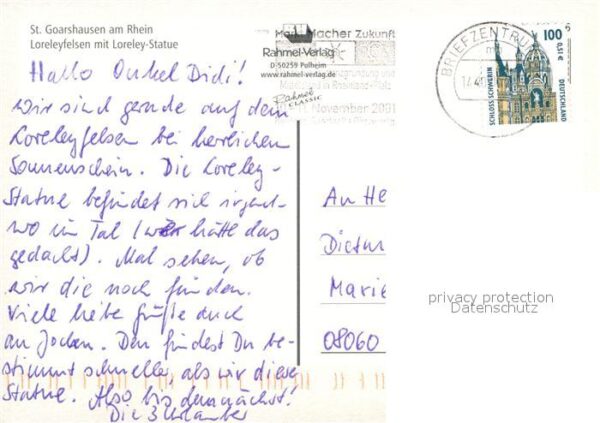 St. Goarshausen am Rhein
Loreleyfelsen mit Loreley-Statue
Hallo Onkel Didi!
Wir sind gerade auf dem
Loreleyfelsen bei herrlichem
Sonnenschein. Die Loreley-
Statue befindet sich irgend-
wo im Tal (wer hätte das
gedacht). Mal sehen, ob
wir die noch finden.
Viele liebe Grüße auch
an Jochen. Den findest Du be-
stimmt schneller als wir diese
Statue. Also bis demnächst!
Die 3 Urlauber
Macher Zukunft
Rahmel-Verlag
D-50259 Pulheim
www.rahmel-verlag.de
Rahmel
CLASSIC
November 2001
BRIEFZENTRUM
14
100
0,51 €
SCHLOSS SCHWERIN
DEUTSCHLAND
An He
Dietm
Marie
08060
privacy protection
Datenschutz